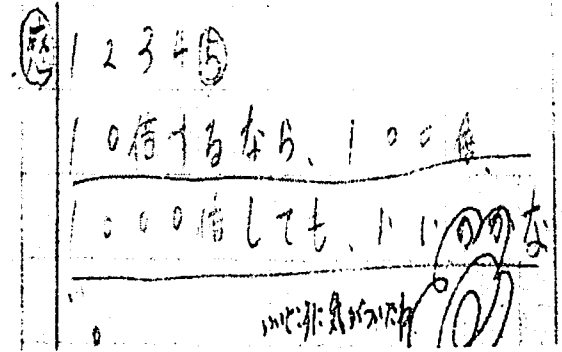 感 1 2 3 4 5
10倍するなら、100倍、
1000倍しても、いいのかな
。
いいところに気がついたね